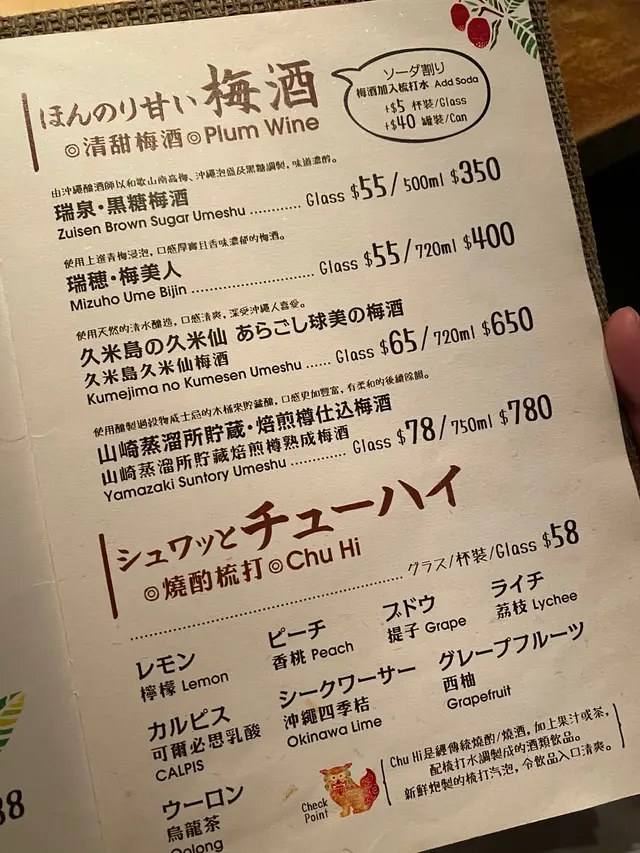 ほんのり甘い 梅酒
◎清甜梅酒◎Plum Wine
ソーダ割り
梅酒加入梳打水 Add Soda
+$5 杯裝/Glass
+$40 罐裝/Can
由沖繩釀酒師以和歌山南高梅、沖繩泡盛及黑糖調製，味道濃醇。
瑞泉・黒糖梅酒
Zuisen Brown Sugar Umeshu ............ Glass $55/500ml $350
使用上選青梅浸泡，口感厚實且香味濃郁的梅酒。
瑞穂・梅美人
Mizuho Ume Bijin ............ Glass $55/720ml $400
使用天然的清水釀造，口感清爽，深受沖繩人喜愛。
久米島の久米仙 あらごし球美の梅酒
久米島久米仙梅酒
Kumejima no Kumesen Umeshu ...... Glass $65/720ml $650
使用釀製過穀物威士忌的木桶來貯藏釀，口感更加豐富，有柔和的後續餘韻。
山崎蒸溜所貯蔵・焙煎樽仕込梅酒
山崎蒸溜所貯藏焙煎樽熟成梅酒
Yamazaki Suntory Umeshu ............ Glass $78/750ml $780
シュワッと チューハイ
◎燒酌梳打◎Chu Hi
グラス/杯裝/Glass $58
レモン
檸檬 Lemon
ピーチ
香桃 Peach
ブドウ
提子 Grape
ライチ
荔枝 Lychee
カルピス
可爾必思乳酸
CALPIS
シークワーサー
沖繩四季桔
Okinawa Lime
グレープフルーツ
西柚
Grapefruit
ウーロン
烏龍茶
Oolong
Check
Point
Chu Hi是經傳統燒酌/燒酒，加上果汁或茶，
配梳打水調製成的酒類飲品。
新鮮炮製的梳打汽泡，令飲品入口清爽。
38